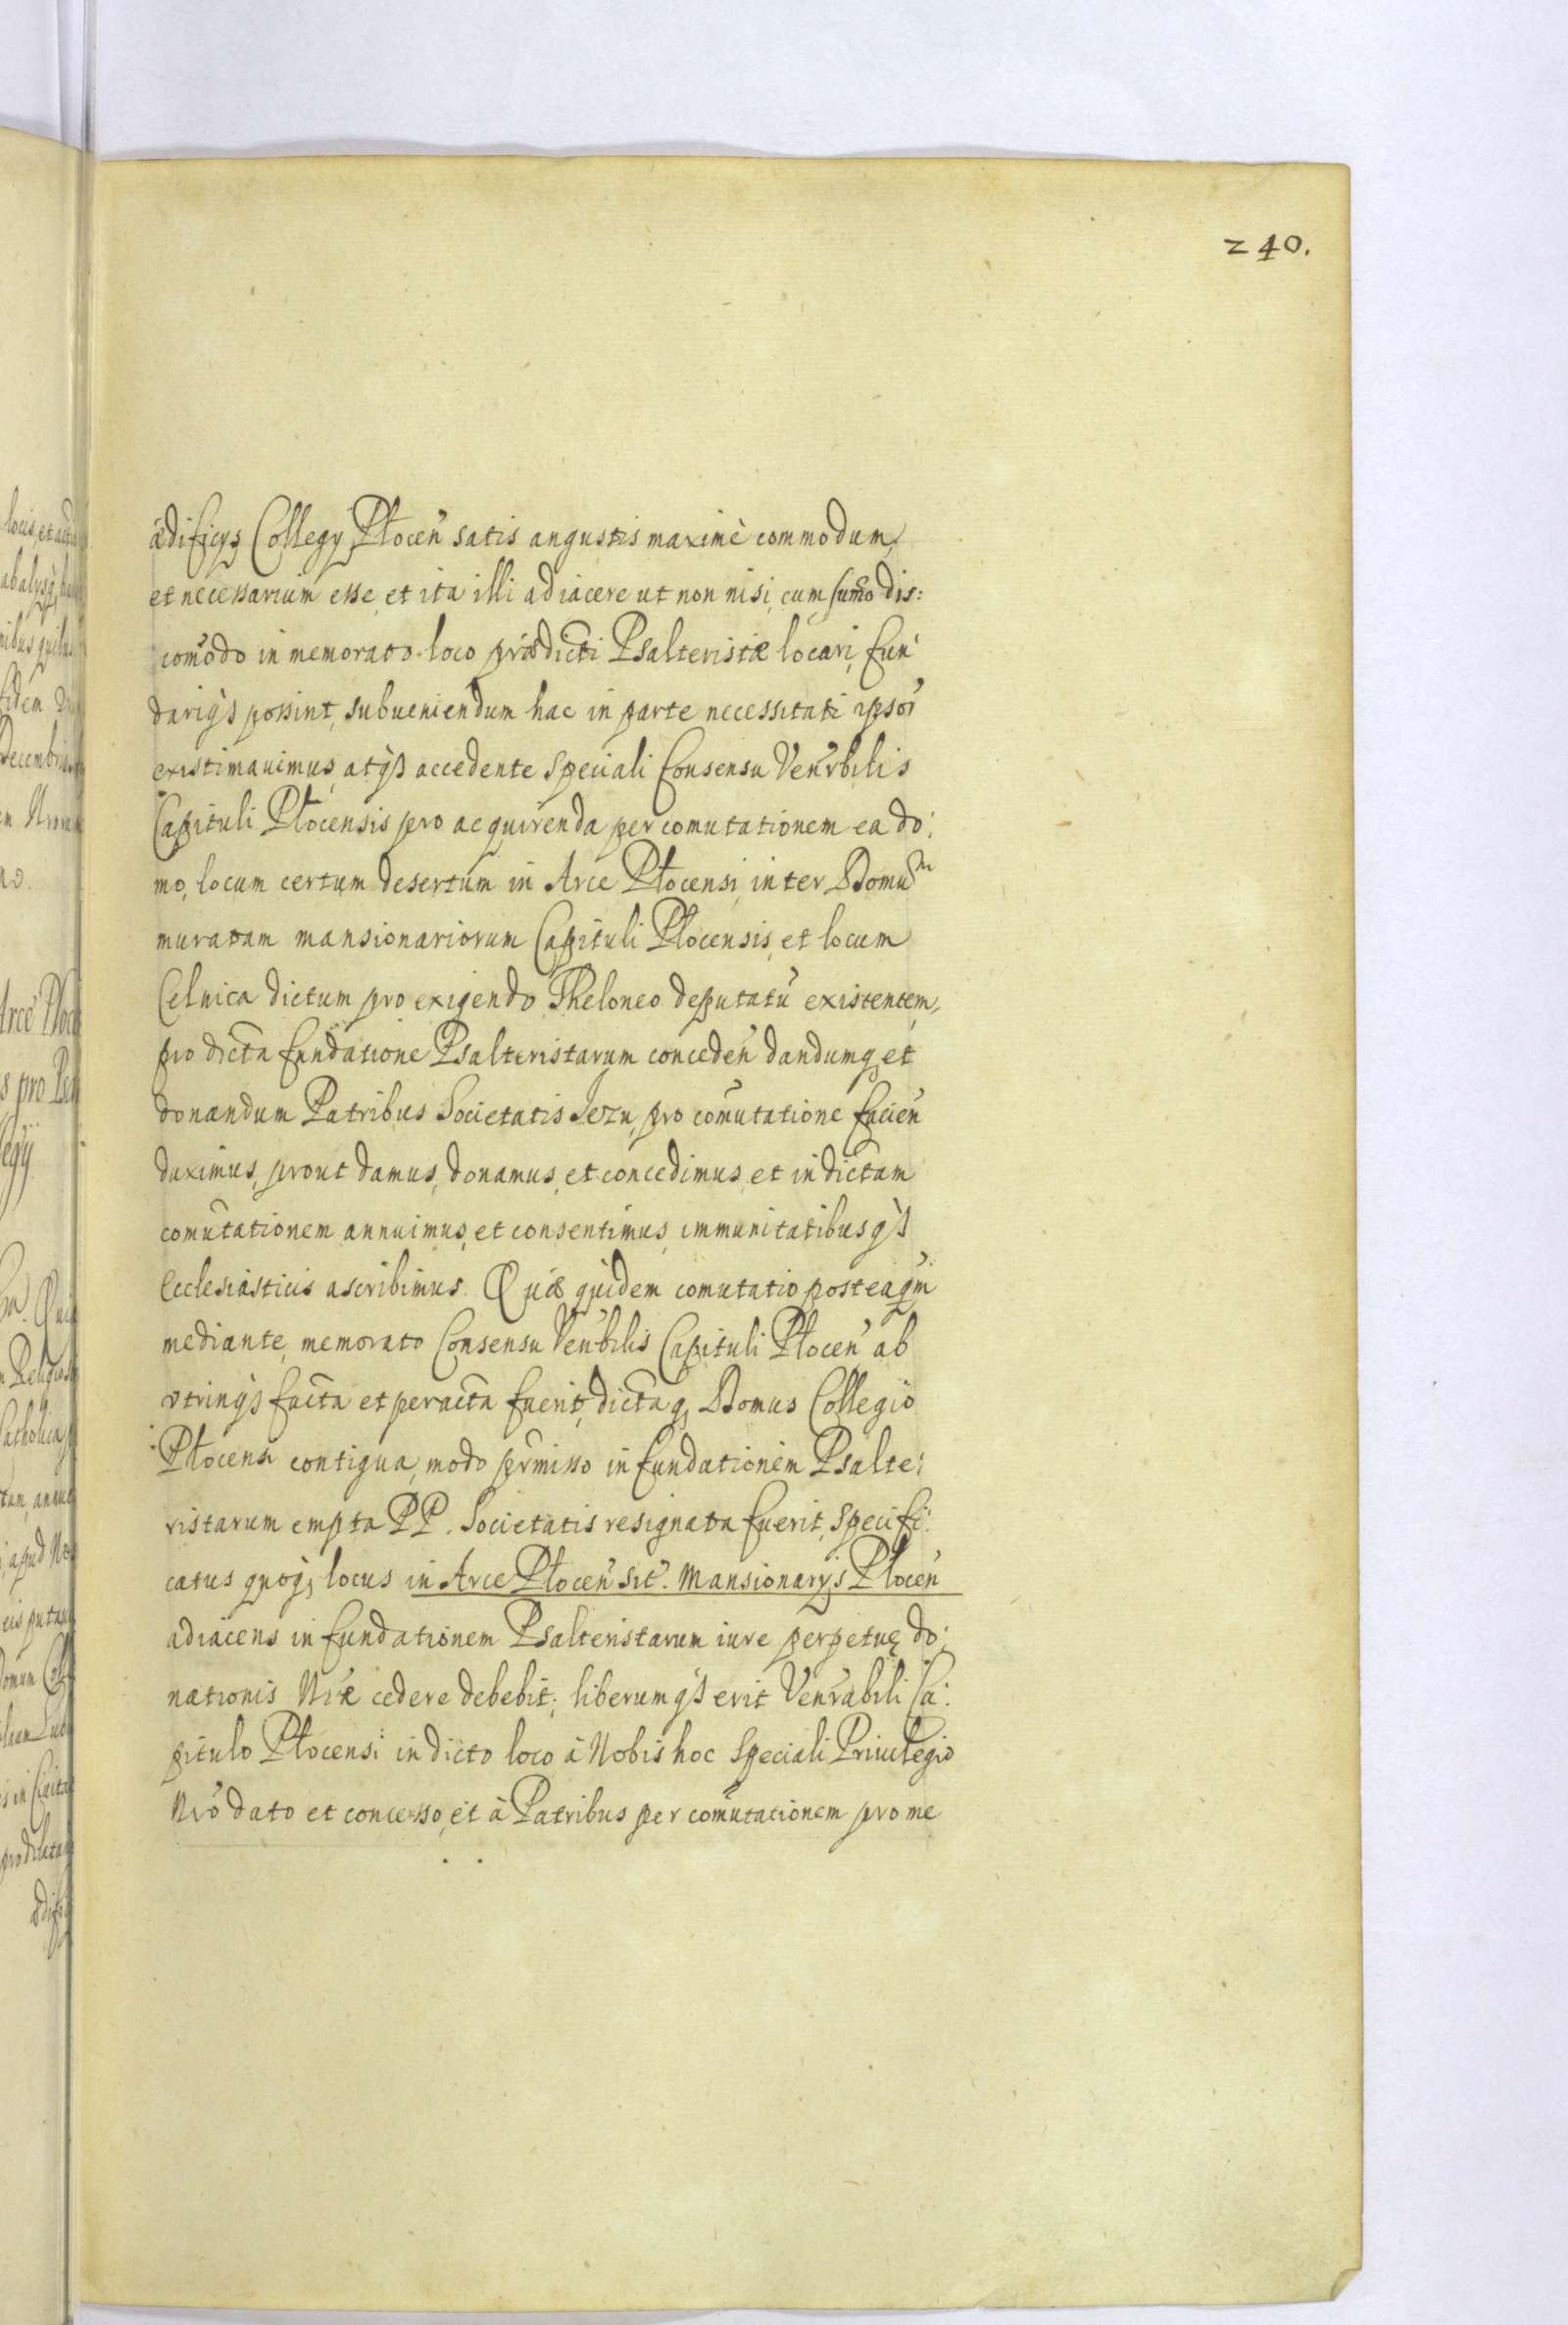 240.
ædificys Collegy Płoceñ satis angustis maximè commodum,
et necessarium esse, et ita illi adiacere ut non nisi cum sum̃o dis:
com̃odo in memorato loco prædicti Psalteristæ locari, fun:
dariq; possint, subueniendum hac in parte necessitati ipsor̃
existimauimus, atq; accedente speciali Consensu Venr̃bilis
Capituli Płocensis pro acquirenda per com̃utationem ea do:
mo, locum certum desertum in Arce Płocensi, inter Domum
muratam mansionariorum Capituli Płocensis, et locum
Celnica dictum pro exigendo Theloneo deputatũ existentem,
pro dicta fundatione Psalteristarum concedeñ dandumq; et
donandum Patribus Societatis Jezu, pro com̃utatione facieñ
duximus, prout damus, donamus, et concedimus, et in dictam
com̃utationem annuimus, et consentimus, immunitatibusq;
Ecclesiasticis ascribimus. Quæ quidem comutatio posteaqm̃
mediante, memorato Consensu Ven̄bilis Capituli Płoceñ ab
vtrinq; facta et peracta fuerit, dictaq; Domus Collegio
Płocensi contigua, modo pr̃misso in fundationem Psalte:
ristarum empta PP. Societatis resignata fuerit, specifi:
catus quoq; locus in Arce Płoceñ sit̃. Mansionarys Płoceñ
adiacens in fundationem Psalteristarum iure perpetuę do:
nationis Nr̃æ cedere debebit; liberumq; erit Venr̃abili Ca:
pitulo Płocensi in dicto loco à Nobis hoc speciali Priuilegio
Nr̃o dato et concesso, et à Patribus per com̃utationem prome